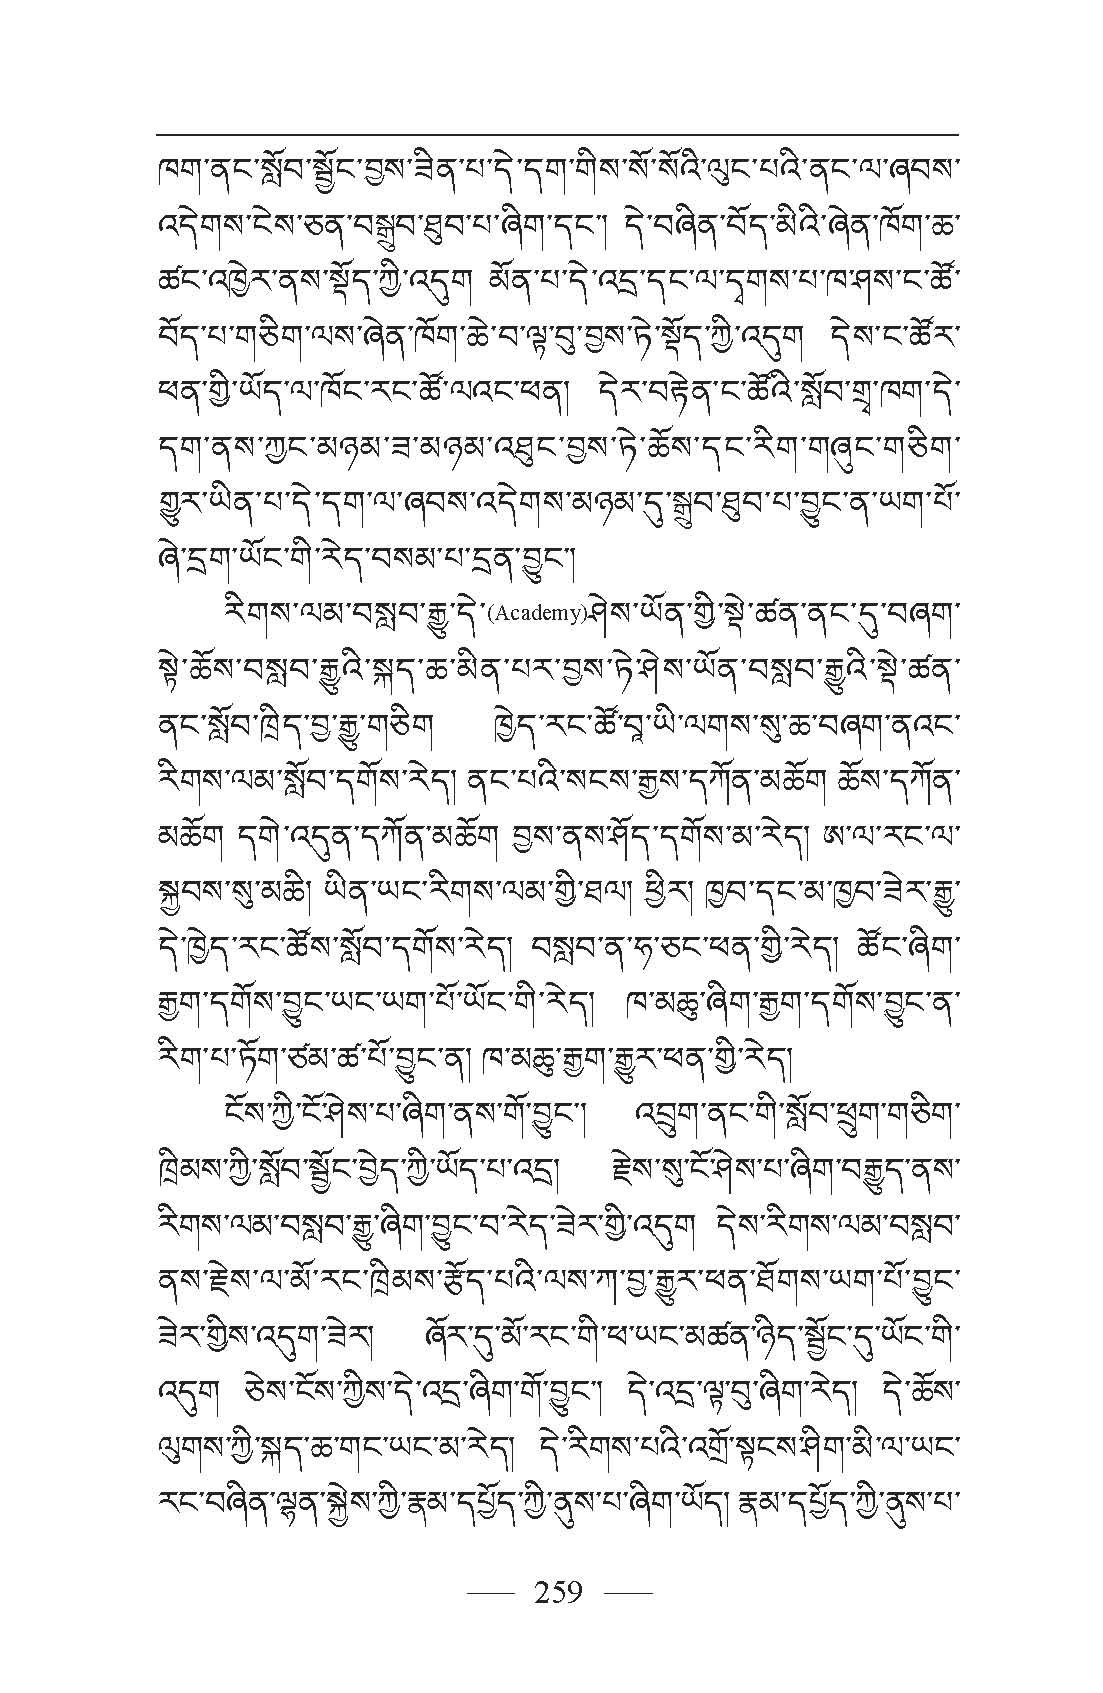 ཁག་ནང་སློབ་སྦྱོང་བྱས་ཟིན་པ་དེ་དག་གིས་སོ་སོའི་ལུང་པའི་ནང་ལ་ཞབས་
འདེགས་ངེས་ཅན་བསྒྲུབ་ཐུབ་པ་ཞིག་དང་། དེ་བཞིན་བོད་མིའི་ཞེན་ཁོག་ཆ་
ཚང་འཁྱེར་ནས་སྡོད་ཀྱི་འདུག མོན་པ་དེ་འདྲ་དང་ལ་དྭགས་པ་ཁ་ཤས་ང་ཚོ་
བོད་པ་གཅིག་ལས་ཞེན་ཁོག་ཆེ་བ་ལྟ་བུ་བྱས་ཏེ་སྡོད་ཀྱི་འདུག དེས་ང་ཚོར་
ཕན་གྱི་ཡོད་ལ་ཁོང་རང་ཚོ་ལའང་ཕན། དེར་བརྟེན་ང་ཚོའི་སློབ་གྲྭ་ཁག་དེ་
དག་ནས་ཀྱང་མཉམ་ཟ་མཉམ་འཐུང་བྱས་ཏེ་ཆོས་དང་རིག་གཞུང་གཅིག་
གྱུར་ཡིན་པ་དེ་དག་ལ་ཞབས་འདེགས་མཉམ་དུ་སྒྲུབ་ཐུབ་པ་བྱུང་ན་ཡག་པོ་
ཞེ་དྲག་ཡོང་གི་རེད་བསམ་པ་དྲན་བྱུང་།
རིགས་ལམ་བསླབ་རྒྱུ་དེ་(Academy)ཤེས་ཡོན་གྱི་སྡེ་ཚན་ནང་དུ་བཞག་
སྟེ་ཆོས་བསླབ་རྒྱུའི་སྐད་ཆ་མིན་པར་བྱས་ཏེ་ཤེས་ཡོན་བསླབ་རྒྱུའི་སྡེ་ཚན་
ནང་སློབ་ཁྲིད་བྱ་རྒྱུ་གཅིག ཁྱེད་རང་ཚོ་བཱ་ཡི་ལགས་སུ་ཆ་བཞག་ནའང་
རིགས་ལམ་སློབ་དགོས་རེད། ནང་པའི་སངས་རྒྱས་དཀོན་མཆོག ཆོས་དཀོན་
མཆོག དགེ་འདུན་དཀོན་མཆོག བྱས་ནས་ཤོད་དགོས་མ་རེད། ཨ་ལ་རང་ལ་
སྐྱབས་སུ་མཆི། ཡིན་ཡང་རིགས་ལམ་གྱི་ཐལ། ཕྱིར། ཁྱབ་དང་མ་ཁྱབ་ཟེར་རྒྱུ་
དེ་ཁྱེད་རང་ཚོས་སློབ་དགོས་རེད། བསླབ་ན་ཧ་ཅང་ཕན་གྱི་རེད། ཚོང་ཞིག་
རྒྱག་དགོས་བྱུང་ཡང་ཡག་པོ་ཡོང་གི་རེད། ཁ་མཆུ་ཞིག་རྒྱག་དགོས་བྱུང་ན་
རིག་པ་ཏོག་ཙམ་ཚ་པོ་བྱུང་ན། ཁ་མཆུ་རྒྱག་རྒྱུར་ཕན་གྱི་རེད།
ངོས་ཀྱི་ངོ་ཤེས་པ་ཞིག་ནས་གོ་བྱུང་། འབྲུག་ནང་གི་སློབ་ཕྲུག་གཅིག་
ཁྲིམས་ཀྱི་སློབ་སྦྱོང་བྱེད་ཀྱི་ཡོད་པ་འདྲ། རྗེས་སུ་ངོ་ཤེས་པ་ཞིག་བརྒྱུད་ནས་
རིགས་ལམ་བསླབ་རྒྱུ་ཞིག་བྱུང་བ་རེད་ཟེར་གྱི་འདུག དེས་རིགས་ལམ་བསླབ་
ནས་རྗེས་ལ་མོ་རང་ཁྲིམས་རྩོད་པའི་ལས་ཀ་བྱ་རྒྱུར་ཕན་ཐོགས་ཡག་པོ་བྱུང་
ཟེར་གྱིས་འདུག་ཟེར། ཞོར་དུ་མོ་རང་གི་ཕ་ཡང་མཚན་ཉིད་སྦྱོང་དུ་ཡོང་གི་
འདུག ཅེས་ངོས་ཀྱིས་དེ་འདྲ་ཞིག་གོ་བྱུང་། དེ་འདྲ་ལྟ་བུ་ཞིག་རེད། དེ་ཆོས་
ལུགས་ཀྱི་སྐད་ཆ་གང་ཡང་མ་རེད། དེ་རིགས་པའི་འགྲོ་སྟངས་ཤིག་མི་ལ་ཡང་
རང་བཞིན་ལྷན་སྐྱེས་ཀྱི་རྣམ་དཔྱོད་ཀྱི་ནུས་པ་ཞིག་ཡོད། རྣམ་དཔྱོད་ཀྱི་ནུས་པ་
259